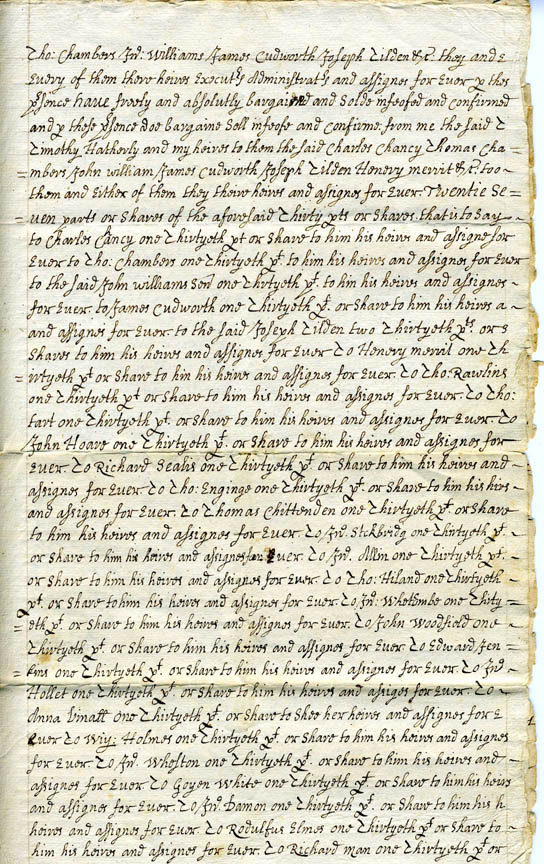 Tho: Chambers Jno: Williams James Cudworth Joseph Tilden &c. they and E
Every of them there heires Executrs Administrats and assignes for Ever p thes
psence have freely and absolutly bargained and Solde infeofed and confirmed
and p these psence doe bargaine Sell infeofe and confirme from me the said T
Timothy Hatherly and my heires to them the said Charles Chancy Thomas Cha=
=mbers John william James Cudworth Joseph Tilden Henery merrit &c. too
them and Either of them they theire heires and assignes for Ever Twentie Se=
=ven parts or Shares of the aforesaid Thirty pts or Shares that is to Say
to Charles Cancy one Thirtyeth pt or Share to him his heires and assigne for
Ever to Tho: Chambers one Thirtyeth pt. to him his heires and assignes for Ever
to the said John williams Senr one Thirtyeth pt. to him his heires and assignes
for Ever to James Cudworth one Thirtyeth pt. or Share to him his heires a
and assignes for Ever to the said Joseph Tilden two Thirtyeth pts. or S
Shares to him his heires and assignes for Ever To Henery merril one Th=
=irtyeth pt or Share to him his heires and assignes for Ever. To Tho: Rawlins
one Thirtyeth pt or Share to him his heires and assignes for Ever. To Tho:
tart one Thirtyeth pt. or Share to him his heires and assignes for Ever. To
John Hoare one Thirtyeth pt. or Share to him his heires and assignes for
Ever. To Richard Sealis one Thirtyeth pt. or Share to him his heires and
assignes for Ever. To Tho: Enginge one Thirtyeth pt. or Share to him his hirs
and assignes for Ever. To Thomas Chittenden one Thirtyeth pt. or Share
to him his heires and assignes for Ever. To Jno. Stckbridg one Thirtyeth pt.
or Share to him his heires and assignes for Ever. To Jno. Allin one Thirtyeth pt.
or Share to him his heires and assignes for Ever. To Tho: Hiland one Thirtyeth
pt. or Share to him his heires and assignes for Ever. To Jno: Whetcombe one Thirty=
=eth pt. or Share to him his heires and assignes for Ever. To John Woodfield one
Thirtyeth pt. or Share to him his heires and assignes for Ever To Edward Jen=
=kins one Thirtyeth pt. or Share to him his heires and assignes for Ever. To Jno
Hollet one Thirtyeth pt. or Share to him his heires and assiges for Ever. To
Anna Vinall one Thirtyeth pt. or Share to Shee her heires and assignes for E
Ever To Wiy: Holmes one Thirtyeth pt. or Share to him his heires and assignes
for Ever. To Jno. Whelton one Thirtyeth pt. or Share to him his heires and
assignes for Ever To Goyen White one Thirtyeth pt. or Share to him his heirs
and assignes for Ever. To Jno. Damon one Thirtyeth pt. or Share to him his h
heires and assignes for Ever To Rodulfus Elmes one Thirtyeth pt or Share to
him his heires and assignes for Ever. To Richard man one Thirtyeth pt or